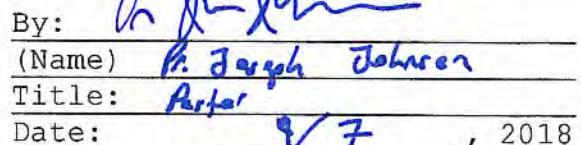 By:
(Name) Pr. Joseph Johnson
Title: Pastor
Date: 9/7, 2018